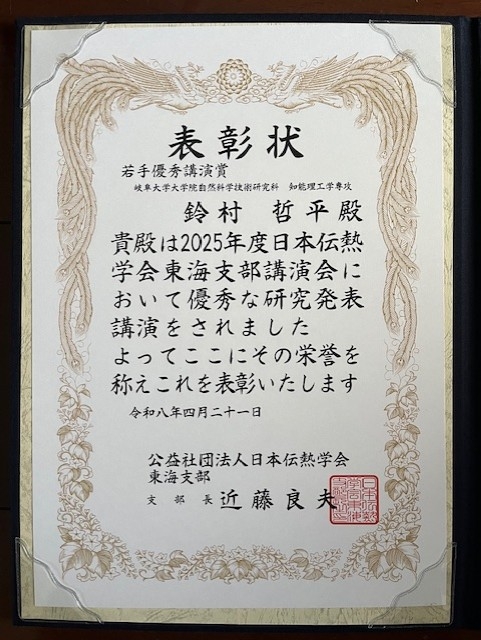 表彰状
若手優秀講演賞
岐阜大学大学院自然科学技術研究科 知能理工学専攻
鈴村 哲平殿
貴殿は2025年度日本伝熱
学会東海支部講演会に
おいて優秀な研究発表
講演をされました
よってここにその栄誉を
称えこれを表彰いたします
令和八年四月二十一日
公益社団法人日本伝熱学会
東海支部
支部長 近藤良夫